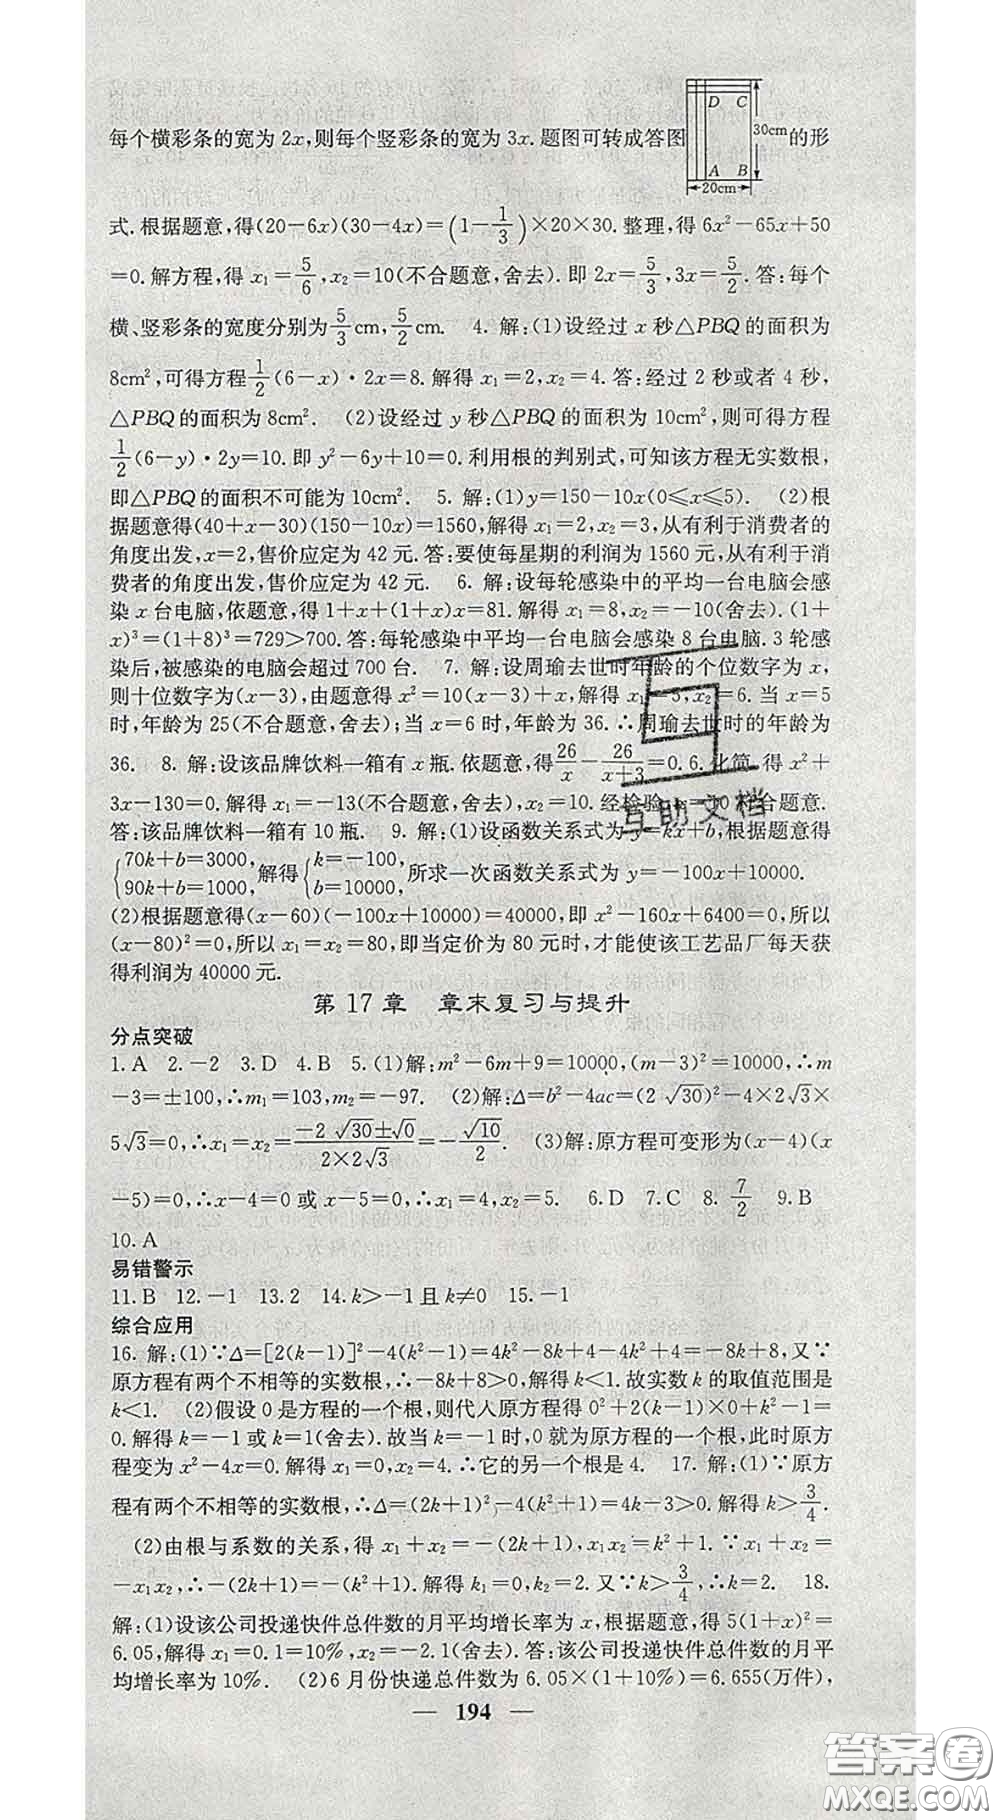 D C
每个横彩条的宽为 2x,则每个竖彩条的宽为 3x. 题图可转成答图 30cm 的形
A B
20cm
式. 根据题意,得(20-6x)(30-4x)=(1-1/3)×20×30. 整理,得 6x²-65x+50
=0. 解方程,得 x₁=5/6,x₂=10(不合题意,舍去). 即 2x=5/3,3x=5/2. 答:每个
横、竖彩条的宽度分别为5/3cm,5/2cm. 4. 解:(1)设经过 x 秒△PBQ 的面积为
8cm²,可得方程1/2(6-x)·2x=8. 解得 x₁=2,x₂=4. 答:经过 2 秒或者 4 秒,
△PBQ 的面积为 8cm². (2)设经过 y 秒△PBQ 的面积为 10cm²,则可得方程
1/2(6-y)·2y=10. 即 y²-6y+10=0. 利用根的判别式,可知该方程无实数根,
即△PBQ 的面积不可能为 10cm². 5. 解:(1)y=150-10x(0≤x≤5). (2)根
据题意得(40+x-30)(150-10x)=1560,解得 x₁=2,x₂=3,从有利于消费者的
角度出发,x=2,售价应定为 42 元. 答:要使每星期的利润为 1560 元,从有利于消
费者的角度出发,售价应定为 42 元. 6. 解:设每轮感染中的平均一台电脑会感
染 x 台电脑,依题意,得 1+x+(1+x)x=81. 解得 x₁=8,x₂=-10(舍去). (1+
x)³=(1+8)³=729>700. 答:每轮感染中平均一台电脑会感染 8 台电脑. 3 轮感
染后,被感染的电脑会超过 700 台. 7. 解:设周瑜去世时年龄的个位数字为 x,
则十位数字为(x-3),由题意得 x²=10(x-3)+x,解得 x₁=5,x₂=6. 当 x=5
时,年龄为 25(不合题意,舍去);当 x=6 时,年龄为 36. ∴周瑜去世时的年龄为
36. 8. 解:设该品牌饮料一箱有 x 瓶. 依题意,得26/x-26/(x+3)=0.6. 化简,得 x²+
3x-130=0. 解得 x₁=-13(不合题意,舍去),x₂=10. 经检验 x=10 符合题意.
答:该品牌饮料一箱有 10 瓶. 9. 解:(1)设函数关系式为 y=kx+b,根据题意得
{70k+b=3000, 90k+b=1000, 解得{k=-100, b=10000, 所求一次函数关系式为 y=-100x+10000.
(2)根据题意得(x-60)(-100x+10000)=40000,即 x²-160x+6400=0,所以
(x-80)²=0,所以 x₁=x₂=80,即当定价为 80 元时,才能使该工艺品厂每天获
得利润为 40000 元.
第 17 章 章末复习与提升
分点突破
1. A 2. -2 3. D 4. B 5. (1)解:m²-6m+9=10000,(m-3)²=10000,∴m
-3=±100,∴m₁=103,m₂=-97. (2)解:Δ=b²-4ac=(2√30)²-4×2√3×
5√3=0,∴x₁=x₂=(-2√30±√0)/(2×2√3)=-√10/2. (3)解:原方程可变形为(x-4)(x
-5)=0,∴x-4=0 或 x-5=0,∴x₁=4,x₂=5. 6. D 7. C 8. 7/2 9. B
10. A
易错警示
11. B 12. -1 13. 2 14. k>-1 且 k≠0 15. -1
综合应用
16. 解:(1)∵Δ=[2(k-1)]²-4(k²-1)=4k²-8k+4-4k²+4=-8k+8,又∵
原方程有两个不相等的实数根,∴-8k+8>0,解得 k<1. 故实数 k 的取值范围是
k<1. (2)假设 0 是方程的一个根,则代入原方程得 0²+2(k-1)×0+k²-1=
0. 解得 k=-1 或 k=1(舍去). 故当 k=-1 时,0 就为原方程的一个根,此时原方
程变为 x²-4x=0. 解得 x₁=0,x₂=4. ∴它的另一个根是 4. 17. 解:(1)∵原方
程有两个不相等的实数根,∴Δ=(2k+1)²-4(k²+1)=4k-3>0. 解得 k>3/4.
(2)由根与系数的关系,得 x₁+x₂=-(2k+1),x₁x₂=k²+1. ∵x₁+x₂=
-x₁x₂,∴-(2k+1)=-(k²+1). 解得 k₁=0,k₂=2. 又∵k>3/4,∴k=2. 18.
解:(1)设该公司投递快件总件数的月平均增长率为 x,根据题意,得 5(1+x)²=
6.05,解得 x₁=0.1=10%,x₂=-2.1(舍去). 答:该公司投递快件总件数的月平
均增长率为 10%. (2)6 月份快递总件数为 6.05×(1+10%)=6.655(万件),
— 194 —
互助文档
答案圈
MXQE.COM